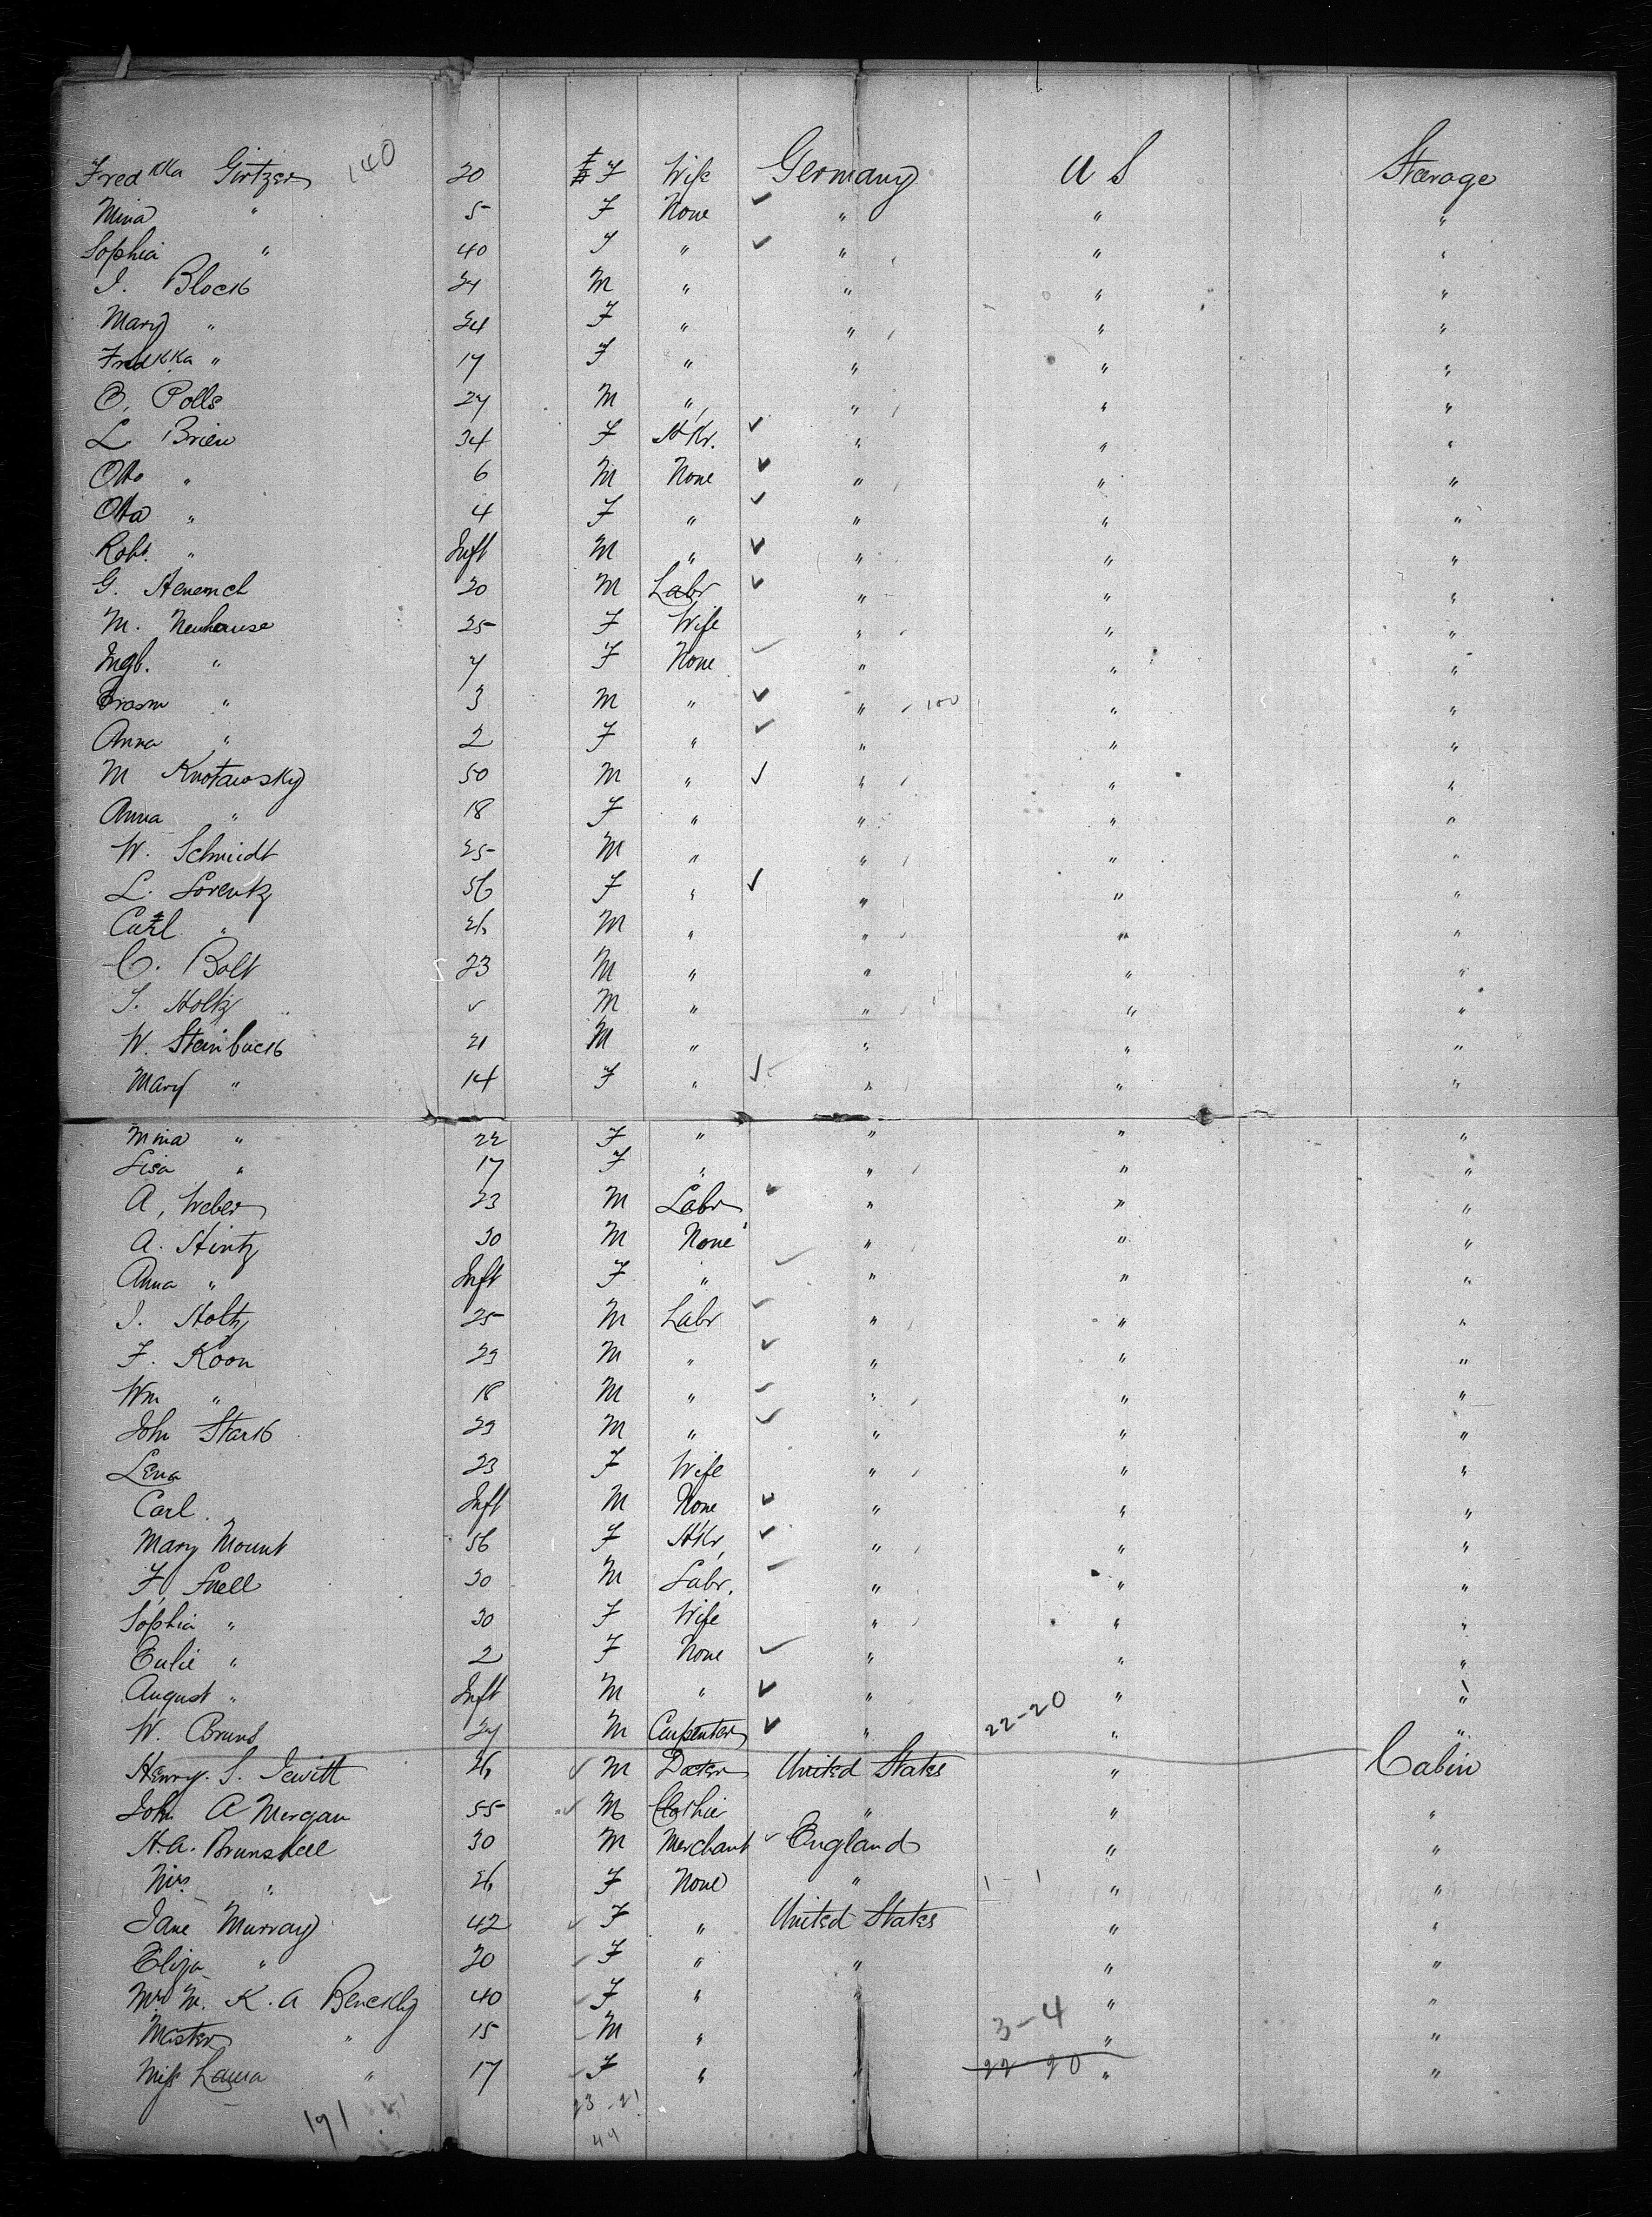 Fredkka Girtzer 140 20 F Wife Germany U S Steerage
Mina " 5 F None " " "
Sophia " 40 F " " " "
I. Block 24 M " " " "
Mary " 24 F " " " "
Fredkka " 17 F " " " "
Polls 27 M " " " "
L Brien 34 F HKr. " " "
Otto " 6 M None " " "
Otta " 4 F " " " "
Robt. " Inft M " " " "
G. 20 M Labr " " "
M. Neuhause 25 F Wife " " "
Ingb. " 7 F None " " "
Erasm " 3 M " " 100 " "
Anna " 2 F " " " "
M Knotawsky 50 M " " " "
Anna " 18 F " " " "
W. Schmidt 25 M " " " "
L. Lorentz 56 F " " " "
Carl " 26 M " " " "
C. Bolt 23 M " " " "
Holtz M " " " "
W. Steinback 21 M " " " "
Mary " 14 F " " " "
Mina " 22 F " " " "
Lisa " 17 F " " " "
A, Weber 23 M Labr " " "
A. Hintz 30 M None " " "
Anna " Inft F " " " "
I. Holtz 25 M Labr " " "
F. Koon 23 M " " " "
Wm " 18 M " " " "
John Stark 23 M " " " "
Lena 23 F Wife " " "
Carl Inft M None " " "
Mary Mount 56 F HKr, " " "
F, Snell 30 M Labr. " " "
Sophia " 30 F Wife " " "
Eulie " 2 F None " " "
August " Inft M " " " "
W. Bruns 27 M Carpenter " 22-20 " "
Henry. S. Jewitt 26 M United States " Cabin
John A Morgan 55 M " " "
H. A. Brunskell 30 M Merchant England " "
Mrs " 26 F None " 1-1 " "
Jane Murray 42 F " United States " "
Eliza " 20 F " " " "
Mrs M. K. A Benckly 40 F " " " "
Master " 15 M " " 3-4 " "
Miss Laura " 17 F " " 22 20 " "
191 23-21
44